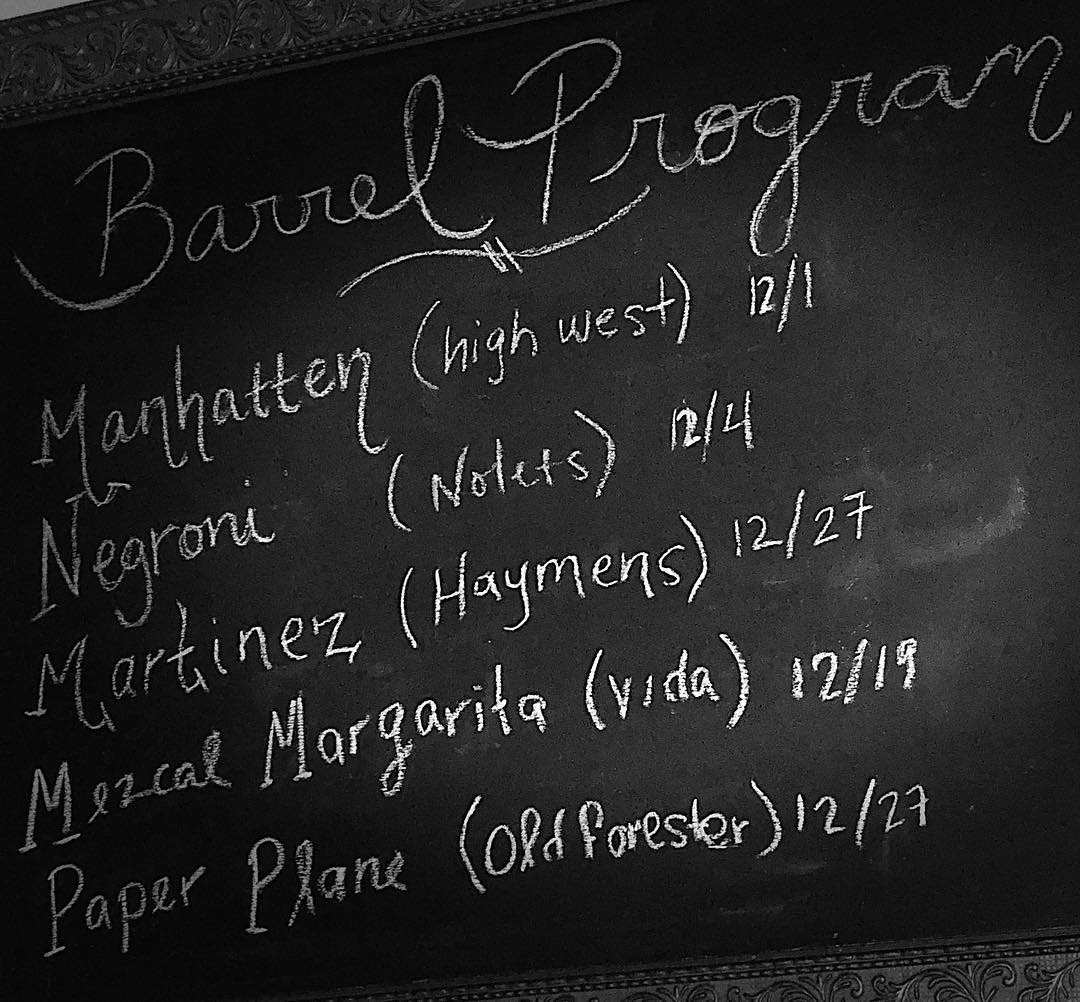 Barrel Program
Manhatten (high west) 12/1
Negroni (Nolets) 12/4
Martinez (Haymens) 12/27
Mezcal Margarita (vida) 12/19
Paper Plane (Old forester) 12/27